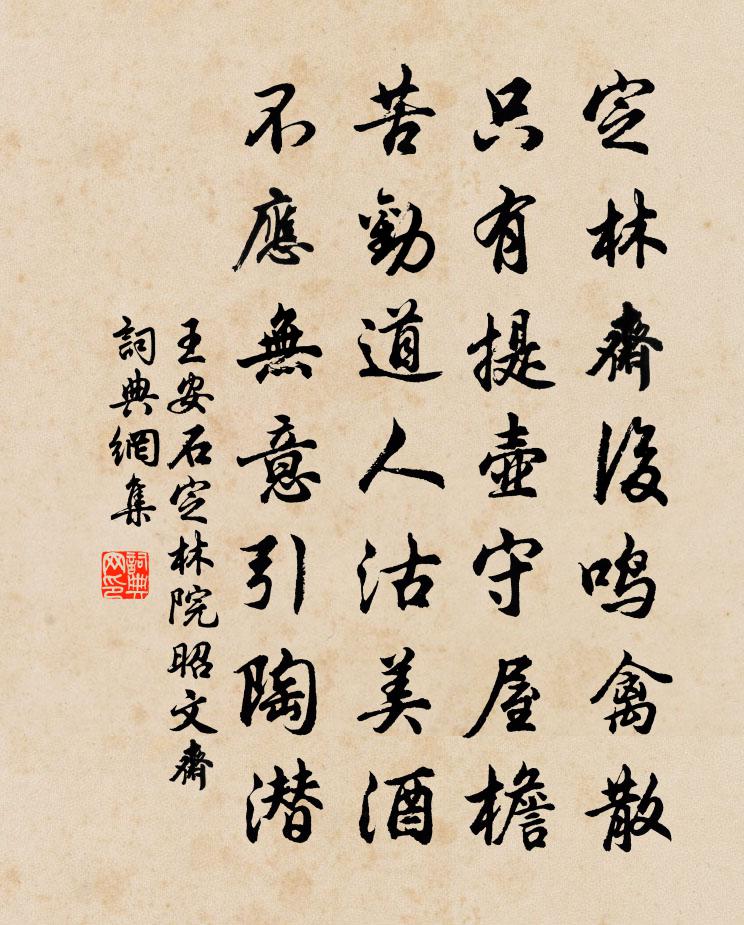 定林齋後鳴禽散
只有提壺守屋檐
苦勸道人沽美酒
不應無意引陶潜
王安石定林院昭文齋
詞典網集
詞典网印